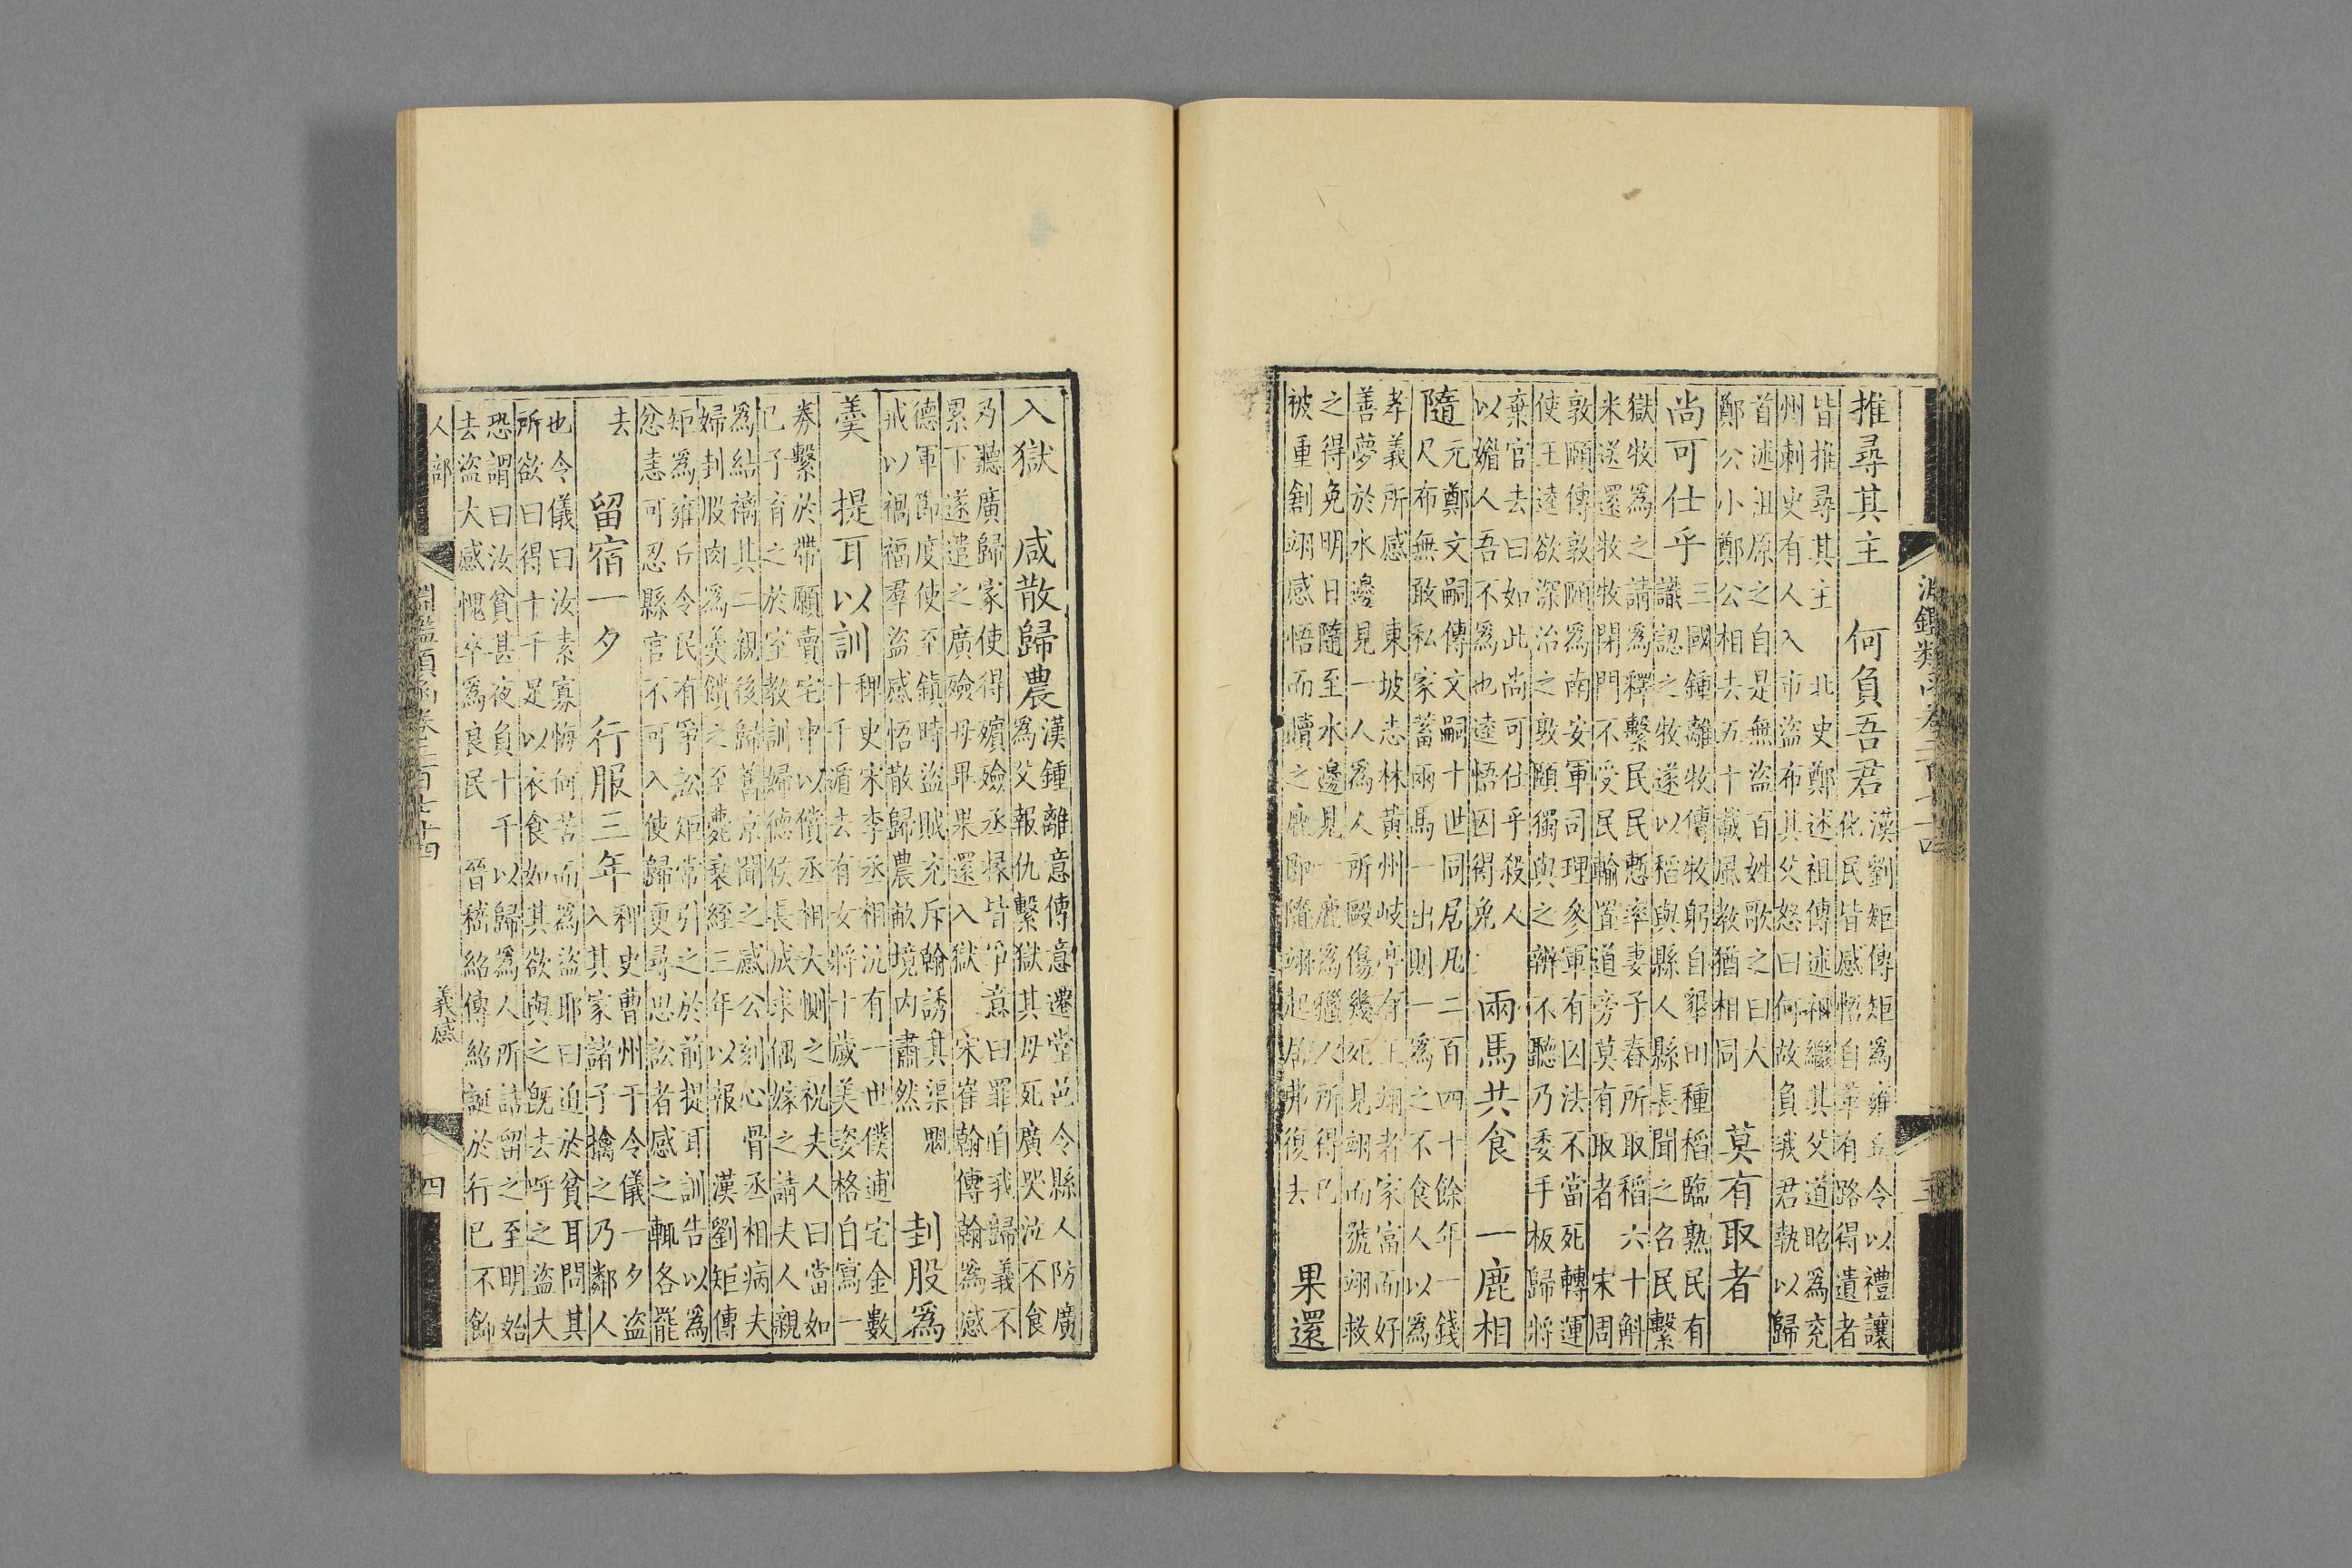 淵鑑類函卷三百十四
三
推尋其主　何負吾君
漢劉矩傳矩爲雍丘令以禮讓
化民皆感悟自革有路得遺者
皆推尋其主　北史鄭述祖傳述祖繼其父道昭爲兗
州刺史有人入市盜布其父怒曰何故負我君執以歸
首述祖原之自是無盜百姓歌之曰大
鄭公小鄭公相去五十載風教猶相同
莫有取者
尚可仕乎
三國鍾離牧傳牧躬自墾田種稻臨熟民有
識認之牧遂以稻與縣人縣長聞之召民繫
獄牧爲之請爲釋繫民民慙率妻子舂所取稻六十斛
米送還牧牧閉門不受民輸置道旁莫有取者　宋周
敦頤傳敦頤爲南安軍司理參軍有囚法不當死轉運
使王逵欲深治之敦頤獨與之辦不聽乃委手板歸將
棄官去曰如此尚可仕乎殺人
以媚人吾不爲也逵悟囚得免
兩馬共食　一鹿相
隨
元鄭文嗣傳文嗣十世同居凡二百四十餘年一錢
尺布無敢私家蓄兩馬一出則一爲之不食人以爲
孝義所感　東坡志林黃州岐亭有王翊者家富而好
善夢於水邊見一人爲人所毆傷幾死見翊而號翊救
之得免明日隨至水邊見一鹿爲獵人所得已
被重創翊感悟而贖之鹿卽隨翊起居弗復去
果還
入獄　咸散歸農
漢鍾離意傳意遷堂邑令縣人防廣
爲父報仇繫獄其母死廣哭泣不食
乃聽廣歸家使得殯殮丞掾皆爭意曰罪自我歸義不
累下遂遣之廣殮母畢果還入獄　宋崔翰傳翰爲感
德軍節度使至鎮時盜賊充斥翰誘其渠魁
戒以禍福羣盜感悟散歸農畝境内肅然
刲股爲
羹　提耳以訓
稗史宋李丞相沆有一世僕逋宅金數
十千遁去有女將十歲美姿格自寫一
券繫於帶願賣宅中以償丞相大惻之祝夫人曰當如
已子育之於室教訓婦德候長成求偶嫁之請夫人親
爲結褵其二親後歸舊京聞之感公刻心骨丞相病夫
婦刲股肉爲羹饋之至薨衰絰三年以報　漢劉矩傳
矩爲雍丘令民有爭訟矩常引之於前提耳訓告以爲
忿恚可忍縣官不可入使歸更尋思訟者感之輒各罷
去
留宿一夕　行服三年
稗史曹州于令儀一夕盜
入其家諸子擒之乃鄰人
也令儀曰汝素寡悔何苦而爲盜耶曰迫於貧耳問其
所欲曰得十千足以衣食如其欲與之旣去呼之盜大
恐謂曰汝貧甚夜負十千以歸爲人所詰留之至明始
去盜大感愧卒爲良民　晉嵇紹傳紹誕於行已不飾
人部
淵鑑類函卷三百十四
義感
四